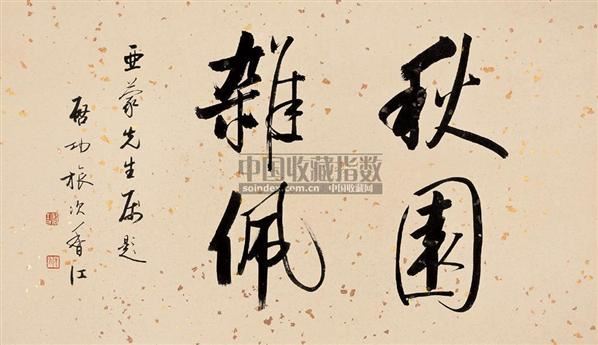 秋園
雜佩
亚蒙先生属題
啓功旅次香江
中国收藏指数
soindex.com.cn 中国收藏网